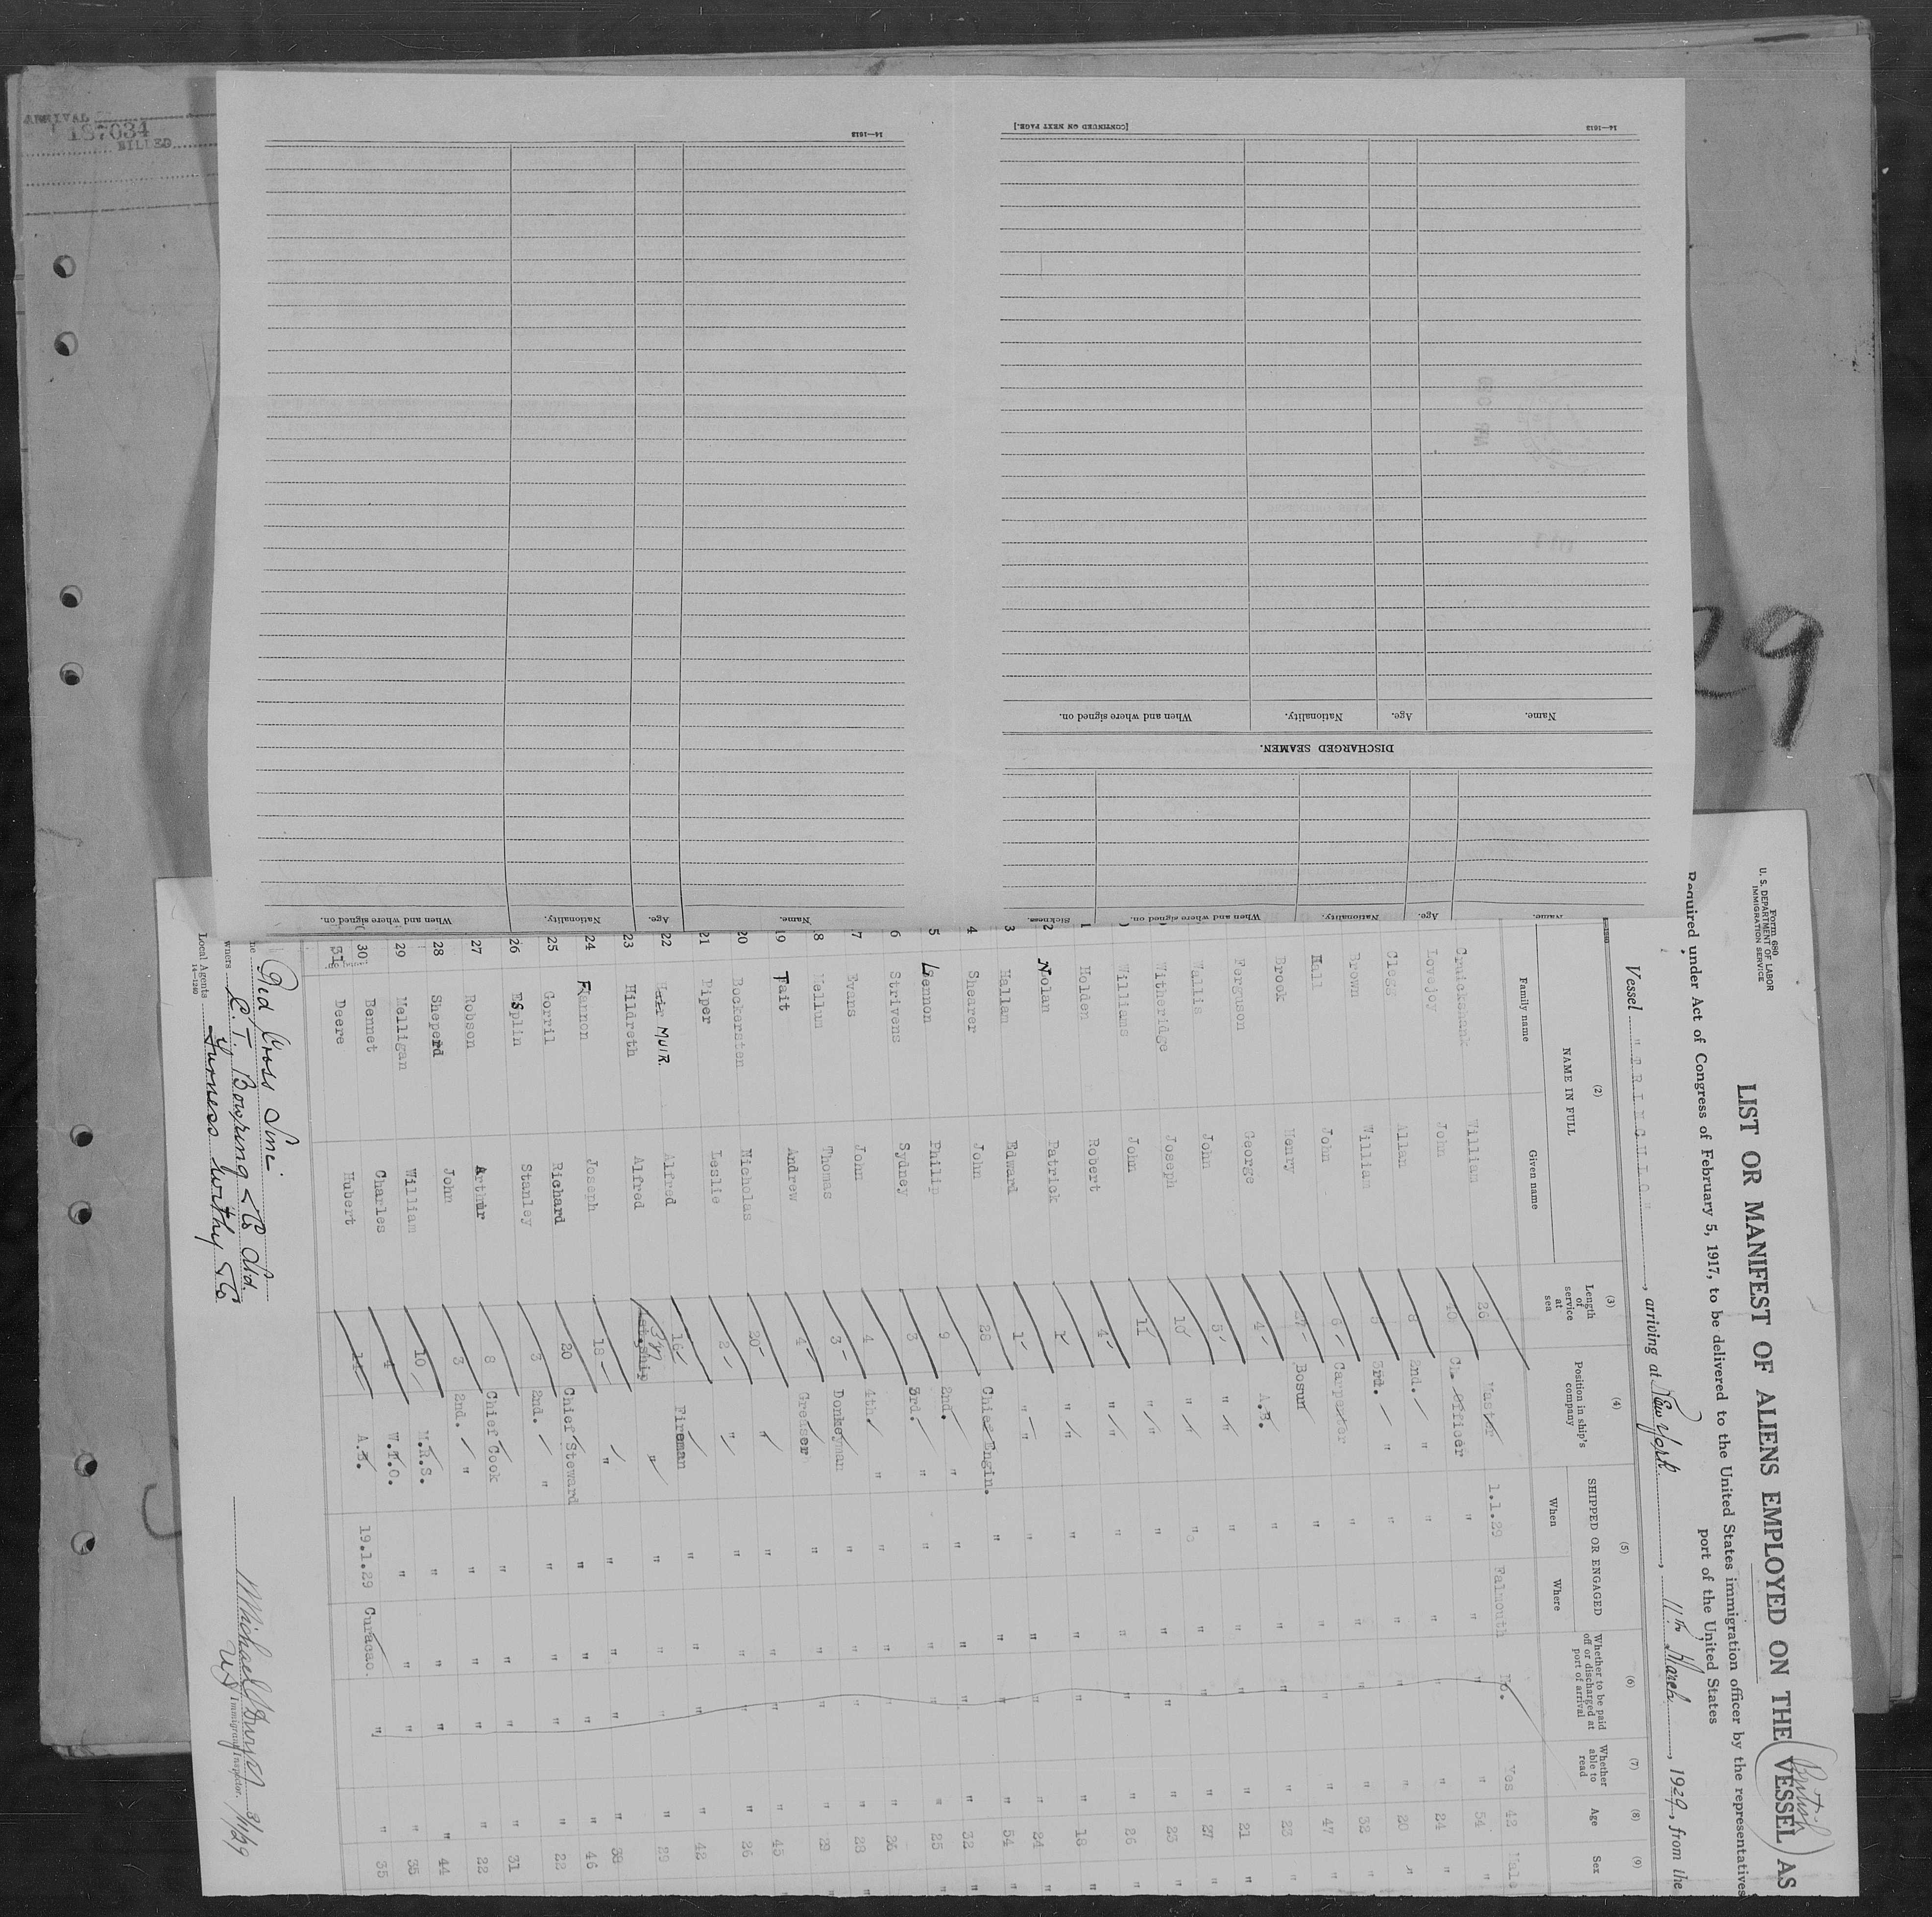 ARRIVAL
187034
BILLED
29
[CONTINUED ON NEXT PAGE.]
14—1613
14—1613
Name. Age. Nationality. When and where signed on.
DISCHARGED SEAMEN.
Name. Age. Nationality. When and where signed on. Sickness.
Name. Age. Nationality. When and where signed on.
Form 680
U. S. DEPARTMENT OF LABOR
IMMIGRATION SERVICE
(British)
LIST OR MANIFEST OF ALIENS EMPLOYED ON THE VESSEL AS
Required under Act of Congress of February 5, 1917, to be delivered to the United States immigration officer by the representatives
port of the United States
Vessel , arriving at New York, 11th March, 1929, from the
(2) (3) (4) (5) (6) (7) (8) (9)
NAME IN FULL Length of service at sea Position in ship's company SHIPPED OR ENGAGED Whether to be paid off or discharged at port of arrival Whether able to read Age Sex
Family name Given name When Where
Cruickshank William 26 Master 1.1.29 Falmouth No. Yes 42 Male
Lovejoy John 40 Ch. Officer " " " " 54 "
Clegg Allan 8 2nd. " " " " " 24 "
Brown William 5 3rd. " " " " " 20 "
Hall John 6 Carpenter " " " " 32 "
Brook Henry 27 Bosun " " " " 47 "
Ferguson George 4 A.B. " " " " 23 "
Wallis John 5 " " " " " 21 "
Witheridge Joseph 10 " " " " " 27 "
Williams John 11 " " " " " 23 "
1 Holden Robert 4 " " " " " 26 "
2 Nolan Patrick 1 " " " " " 18 "
3 Hallam Edward 1 " " " " " 24 "
4 Shearer John 28 Chief Engin. " " " " 54 "
5 Lennon Philip 9 2nd. " " " " " 32 "
6 Strivens Sydney 3 3rd. " " " " " 25 "
7 Evans John 4 4th " " " " " 26 "
8 Kellun Thomas 3 Donkeyman " " " " 28 "
19 Tait Andrew 4 Greaser " " " " 29 "
20 Bockersten Nicholas 20 " " " " " 45 "
21 Piper Leslie 2 " " " " " 26 "
22 MUIR. Alfred 16 Fireman " " " " 42 "
23 Hildreth Alfred 1st.ship " " " " " 29 "
24 Fannon Joseph 18 " " " " " 38 "
25 Gorril Richard 20 Chief Steward " " " " 46 "
26 Esplin Stanley 3 2nd. " " " " " 22 "
27 Robson Arthur 8 Chief Cook " " " " 31 "
28 Sheperd John 3 2nd. " " " " " 22 "
29 Melligan William 10 M.R.S. " " " " 44 "
30 Bennet Charles 4 W.T.O. " " " " 35 "
31 Deere Hubert 11 A.B. 19.1.29 Curacao. " " 35 "
Red Cross Line
Owners C. T. Bowring & Co Ltd.
Local Agents Furness Withy & Co
14—1240
Immigrant Inspector.